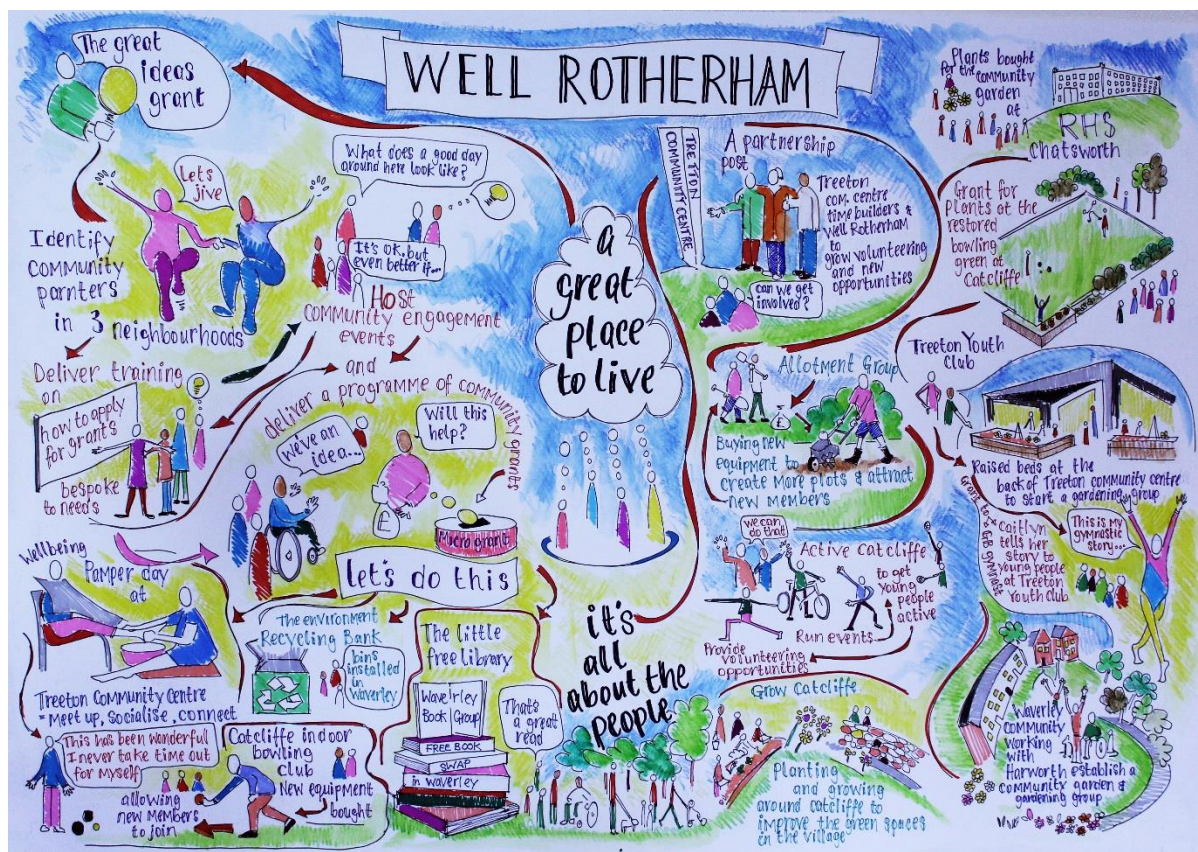 WELL ROTHERHAM
The great
ideas
grant
Lets
jive
What does a good day
around here look like?
It's OK, but
even better if...
Identify
COMMUNITY
parnters
in 3 neighbourhoods
Host
community engagement
events
and
deliver a programme of community grants
Deliver training
on
how to apply
for grants
bespoke
to needs
We've an
idea...
Will this
help?
£
Micro grant
let's do this
Wellbeing
Pamper day
at
Treeton Community Centre
*Meet up, socialise, connect
This has been wonderful
I never take time out
for myself
The environment
Recycling Bank
bins
installed
in
Waverley
Catcliffe indoor
bowling
club
New equipment
bought
allowing
new members
to join
The little
free library
Waverley
Book Group
FREE BOOK
SWAP
in Waverley
Thats
a great
read
a
great
place
to live
it's
all
about the
people
TREETON
COMMUNITY CENTRE
A partnership
post
Treeton
com. centre
time builders &
Well Rotherham
to
grow volunteering
and new
opportunities
can we get
involved?
Allotment Group
£
Buying new
equipment to
create more plots & attract
new members
we can
do that
Active Catcliffe
to get
young
people
active
Run events
Provide
volunteering
opportunities
Grow Catcliffe
Planting
and growing
around catcliffe to
improve the green spaces
in the village
Plants bought
for the community
garden
at
RHS
Chatsworth
Grant for
Plants at the
restored
bowling
green at
Catcliffe
Treeton Youth
Club
Raised beds at the
back of Treeton community centre
to start a gardening group
Grant to GB gymnast
Caitlyn
tells her
story to
young people
at Treeton
Youth club
This is my
gymnastic
story...
Waverley
community
working
with
Harworth establish a
community garden &
gardening group